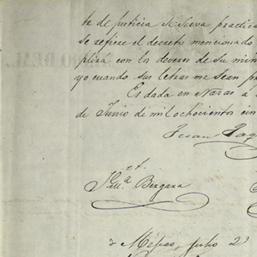 te de justicia se sirva practica
se refiere el decreto mencionado
plirá con los deveres de su min
yo cuando sus letras me sean pr
Es dada en Naxas a
de Junio de mil ochocientos cin
Juan
Bergara
Méjico, Julio 2